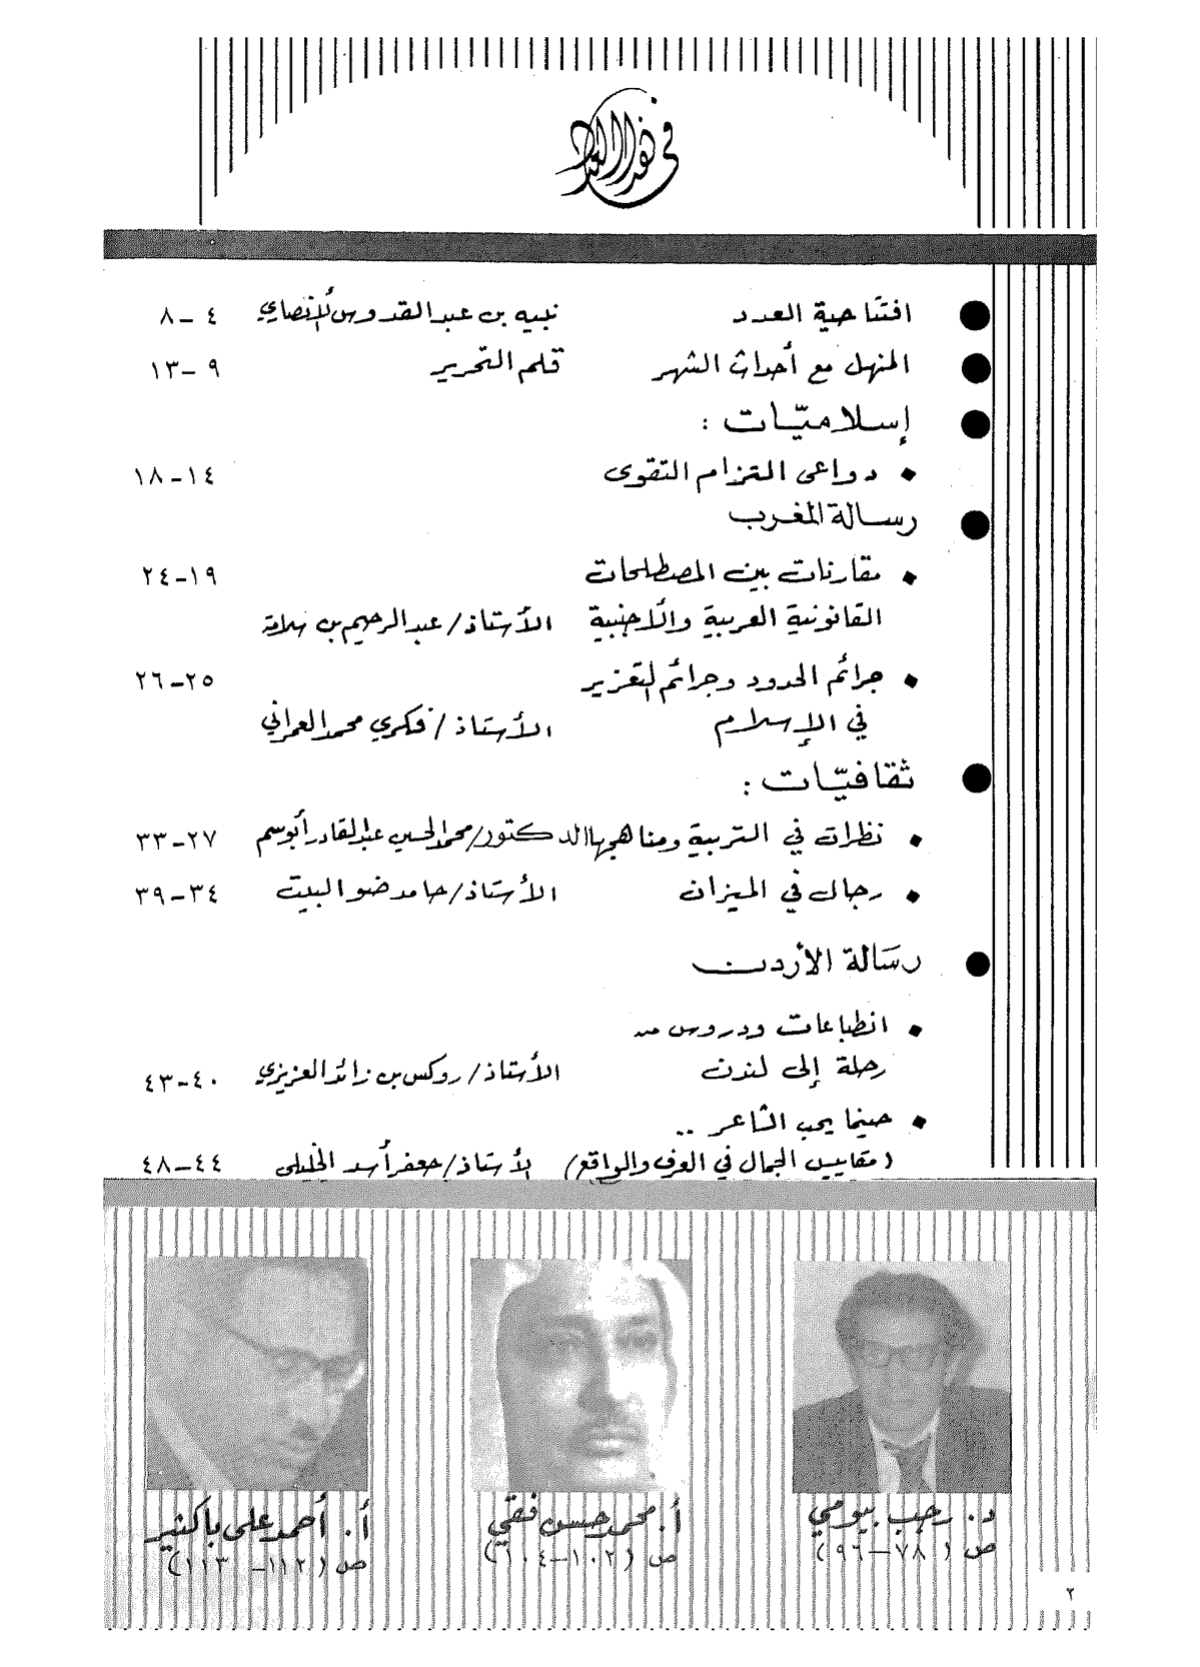 في هذا العدد
افتتاحية العدد نبيه بن عبد القدوس الأنصاري ٤ - ٨
المنهل مع أحداث الشهر قلم التحرير ٩ - ١٣
إسلاميّات :
دواعى التزام التقوى ١٤ - ١٨
رسالة المغرب
مقارنات بين المصطلحات ١٩ - ٢٤
القانونية العربية والأجنبية الأستاذ / عبد الرحيم بن سلامة
جرائم الحدود وجرائم التعزير ٢٥ - ٢٦
في الإسلام الأستاذ / فكري محمد العمراني
ثقافيّات :
نظرات في التربية ومناهجها الدكتور / محمد الحسين عبد القادر أبو سم ٢٧ - ٣٣
رجال في الميزان الأستاذ / حامد ضو البيت ٣٤ - ٣٩
رسَالة الأردن
انطباعات ودروس من
رحلة إلى لندن الأستاذ / روكس بن زائد العزيزي ٤٠ - ٤٣
حينما يحب الشاعر ..
(مقاييس الجمال في العرف والواقع) الأستاذ / جعفر أسد الخليلى ٤٤ - ٤٨
د. رجب بيومي
ص (٧٨ - ٩٦)
أ. محمد حسن فقي
ص (١٠٢ - ١٠٤)
أ. أحمد على باكثير
ص (١١٢ - ١١٣)
٢